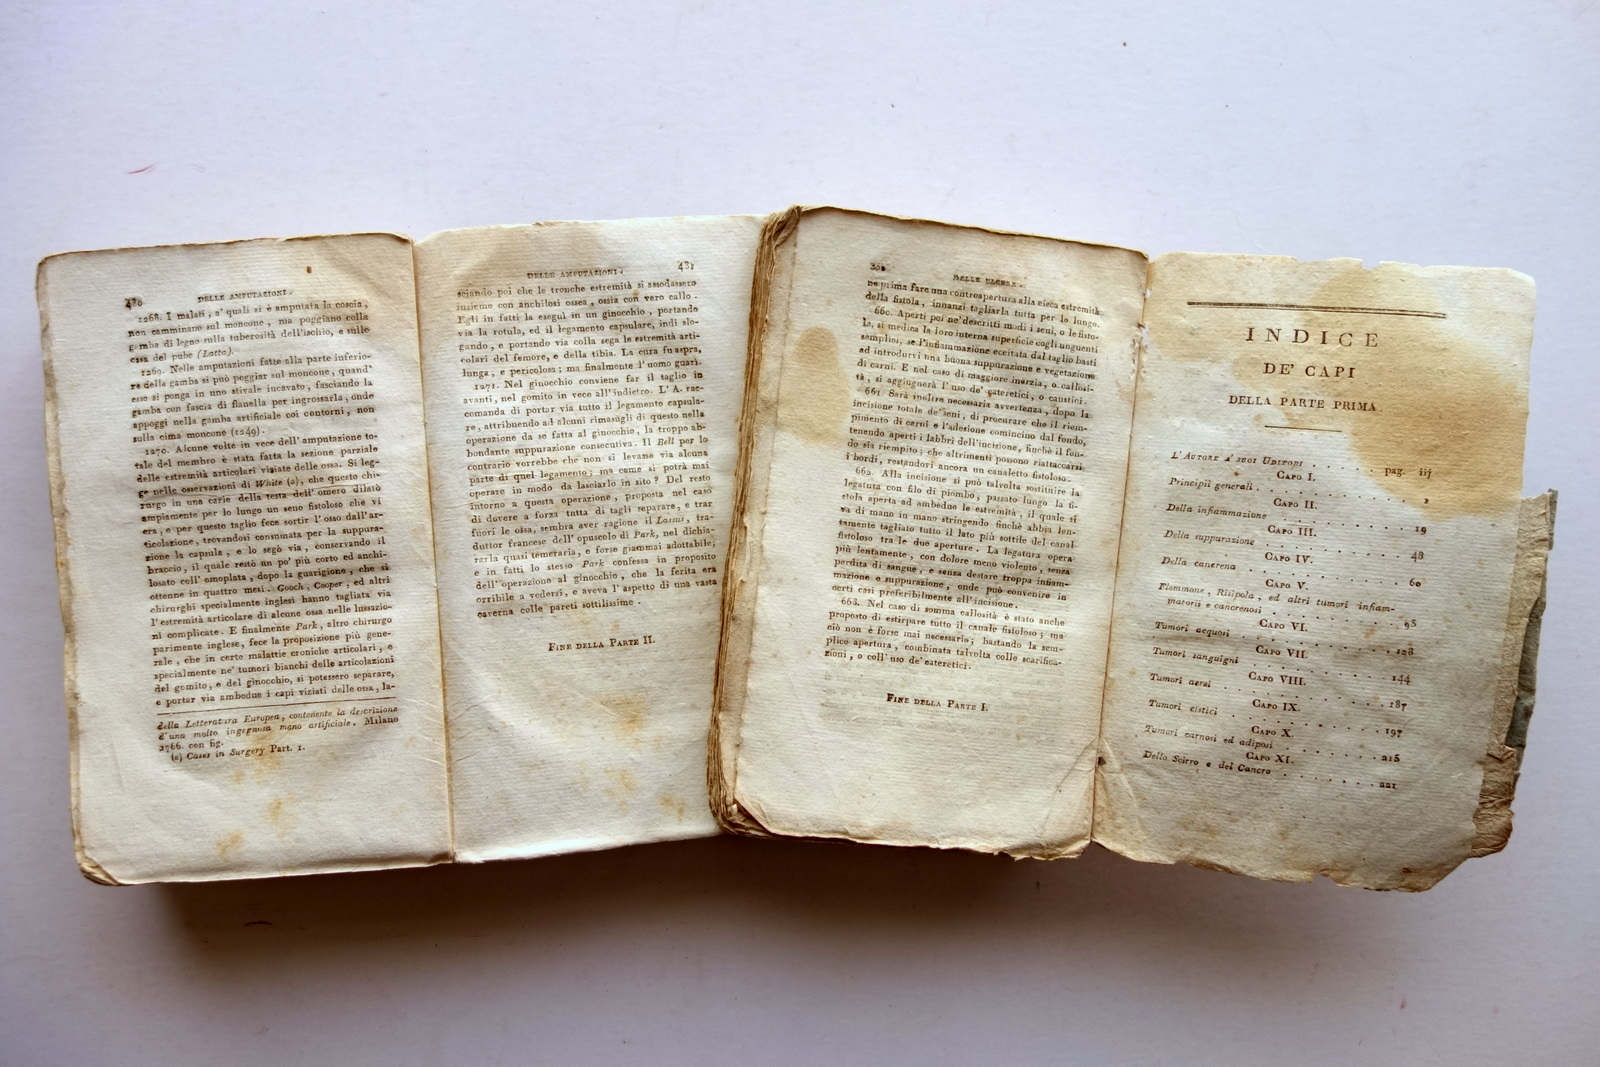 480 DELLE AMPUTAZIONI.
1268. I malati, a' quali si è amputata la coscia,
non camminano sul moncone, ma poggiano colla
gamba di legno sulla tuberosità dell'ischio, e sulle
ossa del pube (Latta).
1269. Nelle amputazioni fatte alla parte inferio-
re della gamba si può poggiar sul moncone, quand'
esso si ponga in uno stivale incavato, fasciando la
gamba con fascia di flanella per ingrossarla, onde
appoggi nella gamba artificiale coi contorni, non
sulla cima moncone (1249).
1270. Alcune volte in vece dell'amputazione to-
tale del membro è stata fatta la sezione parziale
delle estremità articolari viziate delle ossa. Si leg-
ge nelle osservazioni di White (a), che questo chi-
rurgo in una carie della testa dell'omero dilatò
ampiamente per lo lungo un seno fistoloso che vi
era, e per questo taglio fece sortir l'osso dall'ar-
ticolazione, trovandosi consumata per la suppura-
zione la capsula, e lo segò via, conservando il
braccio, il quale restò un po' più corto ed anchi-
losato coll'omoplata, dopo la guarigione, che si
ottenne in quattro mesi. Gooch, Cooper, ed altri
chirurghi specialmente inglesi hanno tagliata via
l'estremità articolare di alcune ossa nelle lussazio-
ni complicate. E finalmente Park, altro chirurgo
parimente inglese, fece la proposizione più gene-
rale, che in certe malattie croniche articolari, e
specialmente ne' tumori bianchi delle articolazioni
del gomito, e del ginocchio, si potessero separare,
e portar via ambedue i capi viziati delle ossa, la-
della Letteratura Europea, contenente la descrizione
d'una molto ingegnosa mano artificiale. Milano
1766. con fig.
(a) Cases in Surgery Part. 1.
DELLE AMPUTAZIONI. 481
sciando poi che le tronche estremità si assodassero
insieme con anchilosi ossea, ossia con vero callo.
Egli in fatti la eseguì in un ginocchio, portando
via la rotula, ed il legamento capsulare, indi slo-
gando, e portando via colla sega le estremità arti-
colari del femore, e della tibia. La cura fu aspra,
lunga, e pericolosa; ma finalmente l'uomo guarì.
1271. Nel ginocchio conviene far il taglio in
avanti, nel gomito in vece all'indietro. L'A. rac-
comanda di portar via tutto il legamento capsula-
re, attribuendo ad alcuni rimasugli di questo nella
operazione da se fatta al ginocchio, la troppo ab-
bondante suppurazione consecutiva. Il Bell per lo
contrario vorrebbe che non si levasse via alcuna
parte di quel legamento; ma come si potrà mai
operare in modo da lasciarlo in sito? Del resto
intorno a questa operazione, proposta nel caso
di dovere a forza tutta di tagli separare, e trar
fuori le ossa, sembra aver ragione il Lassus, tra-
duttor francese dell'opuscolo di Park, nel dichia-
rarla quasi temeraria, e forse giammai adottabile;
e in fatti lo stesso Park confessa in proposito
dell'operazione al ginocchio, che la ferita era
orribile a vedersi, e aveva l'aspetto di una vasta
caverna colle pareti sottilissime.
FINE DELLA PARTE II.
DELLE ULCERE.
ne prima fare una controapertura alla cieca estremità
della fistola, innanzi tagliarla tutta per lo lungo.
660. Aperti poi ne' descritti modi i seni, o le fisto-
le, si medica la loro interna superficie cogli unguenti
semplici, se l'infiammazione eccitata dal taglio basti
ad introdurvi una buona suppurazione e vegetazione
di carni. E nel caso di maggiore inerzia, o callosi-
tà, si aggiungerà l'uso de' cateretici, o caustici.
661. Sarà inoltre necessaria avvertenza, dopo la
incisione totale de' seni, di procurare che il riem-
pimento di carni e l'adesione comincino dal fondo,
tenendo aperti i labbri dell'incisione, finchè il fon-
do sia riempito; che altrimenti possono riattaccarsi
i bordi, restandovi ancora un canaletto fistoloso.
662. Alla incisione si può talvolta sostituire la
legatura con filo di piombo, passato lungo la fi-
stola aperta ad ambedue le estremità, il quale si
va di mano in mano stringendo finchè abbia len-
tamente tagliato tutto il lato più sottile del canal
fistoloso tra le due aperture. La legatura opera
più lentamente, con dolore meno violento, senza
perdita di sangue, e senza destare troppa infiam-
mazione e suppurazione, onde può convenire in
certi casi preferibilmente all'incisione.
663. Nel caso di somma callosità è stato anche
proposto di estirpare tutto il canale fistoloso; ma
ciò non è forse mai necessario; bastando la sem-
plice apertura, combinata talvolta colle scarifica-
zioni, o coll'uso de' cateretici.
FINE DELLA PARTE I.
INDICE
DE' CAPI
DELLA PARTE PRIMA.
L'AUTORE A' SUOI UDITORI . . . . . pag. iij
CAPO I.
Principii generali . . . . . 1
CAPO II.
Della infiammazione . . . . . 19
CAPO III.
Della suppurazione . . . . . 48
CAPO IV.
Della cancrena . . . . . 60
CAPO V.
Flemmone, Risipola, ed altri tumori infiam-
matorii e cancrenosi . . . . . 95
CAPO VI.
Tumori acquosi . . . . . 128
CAPO VII.
Tumori sanguigni . . . . . 144
CAPO VIII.
Tumori aerei . . . . . 187
CAPO IX.
Tumori cistici . . . . . 197
CAPO X.
Tumori carnosi ed adiposi . . . . . 215
CAPO XI.
Dello Scirro e del Cancro . . . . . 221